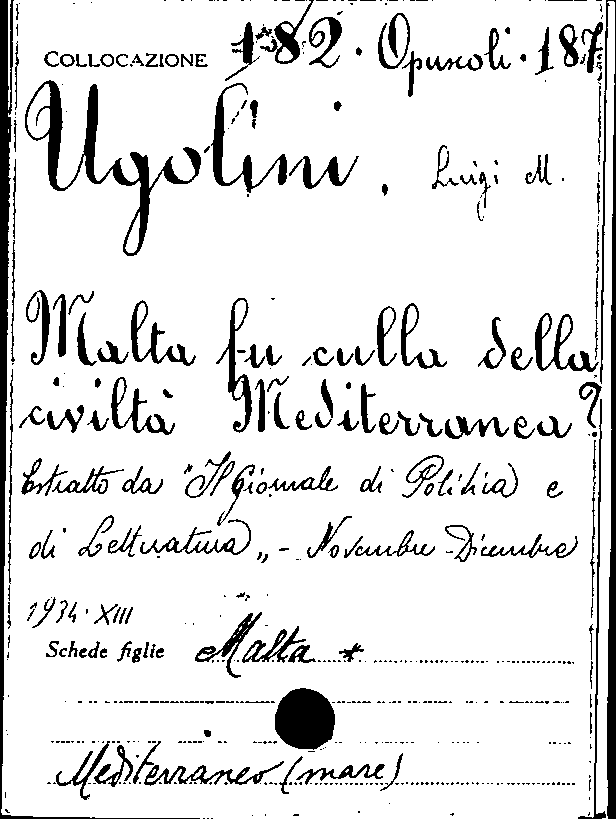 COLLOCAZIONE 182. Opuscoli. 187
Ugolini. Luigi M.
Malta fu culla della
civiltà Mediterranea?
Estratto da "Il Giornale di Politica e
di Letteratura„ - Novembre-Dicembre
1934. XIII
Schede figlie Malta *
Mediterraneo (mare)